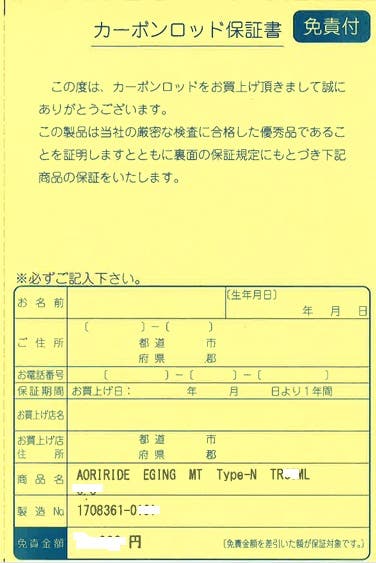 カーボンロッド保証書 免責付
この度は、カーボンロッドをお買上げ頂きまして誠に
ありがとうございます。
この製品は当社の厳密な検査に合格した優秀品であるこ
とを証明しますとともに裏面の保証規定にもとづき下記
商品の保証をいたします。
※必ずご記入下さい。
お名前 〔生年月日〕
年 月 日
ご住所 〔 〕－〔 〕
都道 市
府県 郡
お電話番号 〔 〕－〔 〕－〔 〕
保証期間 お買上げ日： 年 月 日より1年間
お買上げ店名
お買上げ店 都道 市
住所 府県 郡
商品名 AORIRIDE EGING MT Type-N TR ML
製造No 1708361-0
免責金額 円 〔免責金額を差引いた額が保証対象です。〕